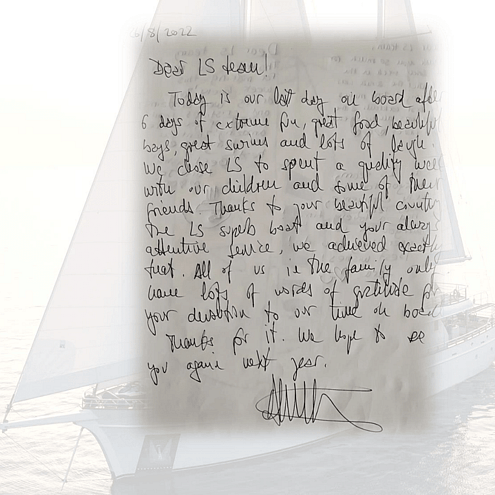 6/8/2022
Dear LS team!
Today is our last day on board after
6 days of extreme fun, great food, beautiful
bays, great swims and lots of laugh.
We chose LS to spent a quality week
with our children and some of their
friends. Thanks to your beautiful country
the LS superb boat and your always
attentive service, we achieved exactly
that. All of us in the family only
have lots of words of gratitude for
your devotion to our time on board
Thanks for it. We hope to see
you again next year.